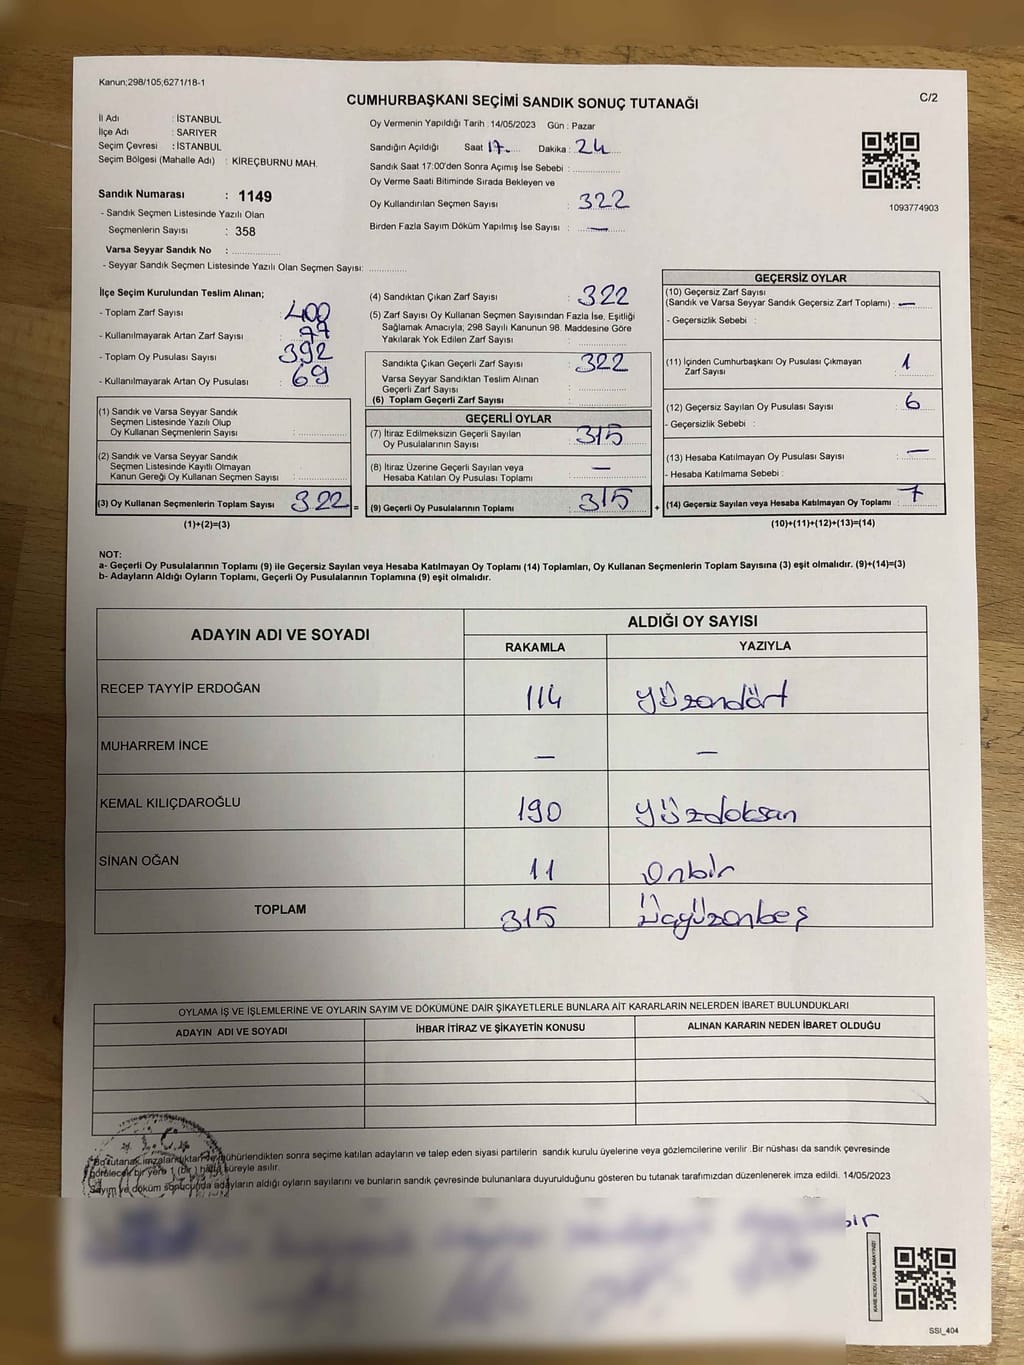 Kanun;298/105;6271/18-1
C/2
CUMHURBAŞKANI SEÇİMİ SANDIK SONUÇ TUTANAĞI
İl Adı : İSTANBUL
İlçe Adı : SARIYER
Seçim Çevresi : İSTANBUL
Seçim Bölgesi (Mahalle Adı) : KİREÇBURNU MAH.
Sandık Numarası : 1149
- Sandık Seçmen Listesinde Yazılı Olan
Seçmenlerin Sayısı : 358
Varsa Seyyar Sandık No :
- Seyyar Sandık Seçmen Listesinde Yazılı Olan Seçmen Sayısı:
Oy Vermenin Yapıldığı Tarih : 14/05/2023 Gün : Pazar
Sandığın Açıldığı Saat 17 Dakika : 24
Sandık Saat 17:00'den Sonra Açımış İse Sebebi :
Oy Verme Saati Bitiminde Sırada Bekleyen ve
Oy Kullandırılan Seçmen Sayısı : 322
Birden Fazla Sayım Döküm Yapılmış İse Sayısı : —
1093774903
İlçe Seçim Kurulundan Teslim Alınan;
- Toplam Zarf Sayısı : 400
- Kullanılmayarak Artan Zarf Sayısı :
- Toplam Oy Pusulası Sayısı : 392
- Kullanılmayarak Artan Oy Pusulası : 69
(1) Sandık ve Varsa Seyyar Sandık
Seçmen Listesinde Yazılı Olup
Oy Kullanan Seçmenlerin Sayısı :
(2) Sandık ve Varsa Seyyar Sandık
Seçmen Listesinde Kayıtlı Olmayan
Kanun Gereği Oy Kullanan Seçmen Sayısı :
(3) Oy Kullanan Seçmenlerin Toplam Sayısı 322 =
(1)+(2)=(3)
(4) Sandıktan Çıkan Zarf Sayısı : 322
(5) Zarf Sayısı Oy Kullanan Seçmen Sayısından Fazla İse, Eşitliği
Sağlamak Amacıyla; 298 Sayılı Kanunun 98. Maddesine Göre
Yakılarak Yok Edilen Zarf Sayısı :
Sandıkta Çıkan Geçerli Zarf Sayısı : 322
Varsa Seyyar Sandıktan Teslim Alınan
Geçerli Zarf Sayısı :
(6) Toplam Geçerli Zarf Sayısı :
GEÇERLİ OYLAR
(7) İtiraz Edilmeksizin Geçerli Sayılan
Oy Pusulalarının Sayısı : 315
(8) İtiraz Üzerine Geçerli Sayılan veya
Hesaba Katılan Oy Pusulası Toplamı : —
(9) Geçerli Oy Pusulalarının Toplamı : 315 +
GEÇERSİZ OYLAR
(10) Geçersiz Zarf Sayısı
(Sandık ve Varsa Seyyar Sandık Geçersiz Zarf Toplamı) : —
- Geçersizlik Sebebi :
(11) İçinden Cumhurbaşkanı Oy Pusulası Çıkmayan
Zarf Sayısı : 1
(12) Geçersiz Sayılan Oy Pusulası Sayısı : 6
- Geçersizlik Sebebi :
(13) Hesaba Katılmayan Oy Pusulası Sayısı : —
- Hesaba Katılmama Sebebi :
(14) Geçersiz Sayılan veya Hesaba Katılmayan Oy Toplamı : 7
(10)+(11)+(12)+(13)=(14)
NOT:
a- Geçerli Oy Pusulalarının Toplamı (9) ile Geçersiz Sayılan veya Hesaba Katılmayan Oy Toplamı (14) Toplamları, Oy Kullanan Seçmenlerin Toplam Sayısına (3) eşit olmalıdır. (9)+(14)=(3)
b- Adayların Aldığı Oyların Toplamı, Geçerli Oy Pusulalarının Toplamına (9) eşit olmalıdır.
ADAYIN ADI VE SOYADI
ALDIĞI OY SAYISI
RAKAMLA YAZIYLA
RECEP TAYYİP ERDOĞAN 114 Yüzondört
MUHARREM İNCE — —
KEMAL KILIÇDAROĞLU 190 Yüzdoksan
SİNAN OĞAN 11 Onbir
TOPLAM 315 Üçyüzonbeş
OYLAMA İŞ VE İŞLEMLERİNE VE OYLARIN SAYIM VE DÖKÜMÜNE DAİR ŞİKAYETLERLE BUNLARA AİT KARARLARIN NELERDEN İBARET BULUNDUKLARI
ADAYIN ADI VE SOYADI İHBAR İTİRAZ VE ŞİKAYETİN KONUSU ALINAN KARARIN NEDEN İBARET OLDUĞU
Bu tutanak imzalandıktan ve mühürlendikten sonra seçime katılan adayların ve talep eden siyasi partilerin sandık kurulu üyelerine veya gözlemcilerine verilir. Bir nüshası da sandık çevresinde
görülecek bir yere 1 (bir) hafta süreyle asılır.
Sayım ve döküm sonucunda adayların aldığı oyların sayılarını ve bunların sandık çevresinde bulunanlara duyurulduğunu gösteren bu tutanak tarafımızdan düzenlenerek imza edildi. 14/05/2023
bir
KARE KODU KARALAMAYINIZ!
SSI_404